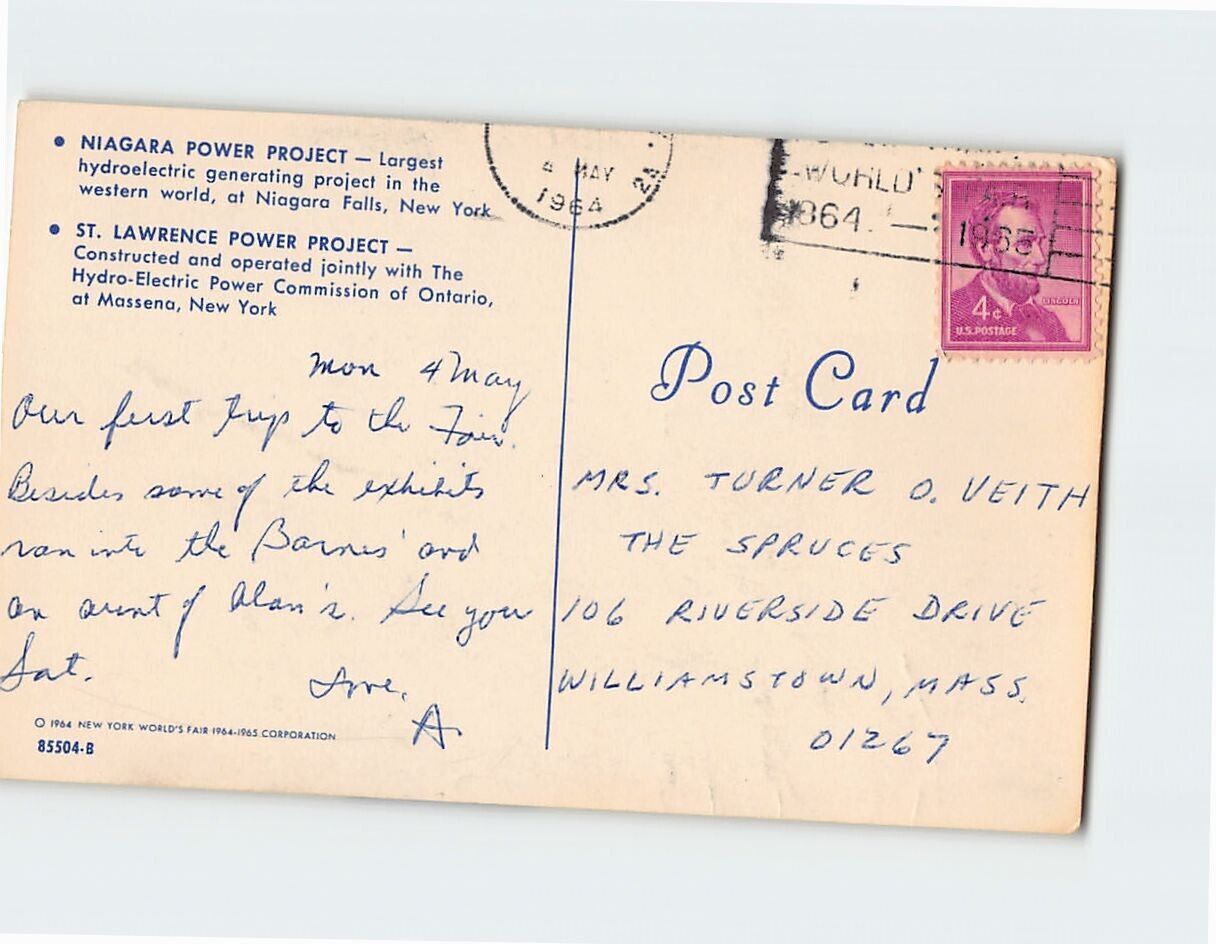 • NIAGARA POWER PROJECT — Largest
hydroelectric generating project in the
western world, at Niagara Falls, New York
• ST. LAWRENCE POWER PROJECT —
Constructed and operated jointly with The
Hydro-Electric Power Commission of Ontario,
at Massena, New York
Mon 4 May
Our first trip to the Fair.
Besides some of the exhibits
ran into the Barnes' and
an aunt of Alan's. See you
Sat.
Love,
A
© 1964 NEW YORK WORLD'S FAIR 1964-1965 CORPORATION
85504-B
4 MAY
1964
WORLD'S FAIR
1964 — 1965
LINCOLN
4¢
U.S. POSTAGE
Post Card
MRS. TURNER O. VEITH
THE SPRUCES
106 RIVERSIDE DRIVE
WILLIAMSTOWN, MASS.
01267